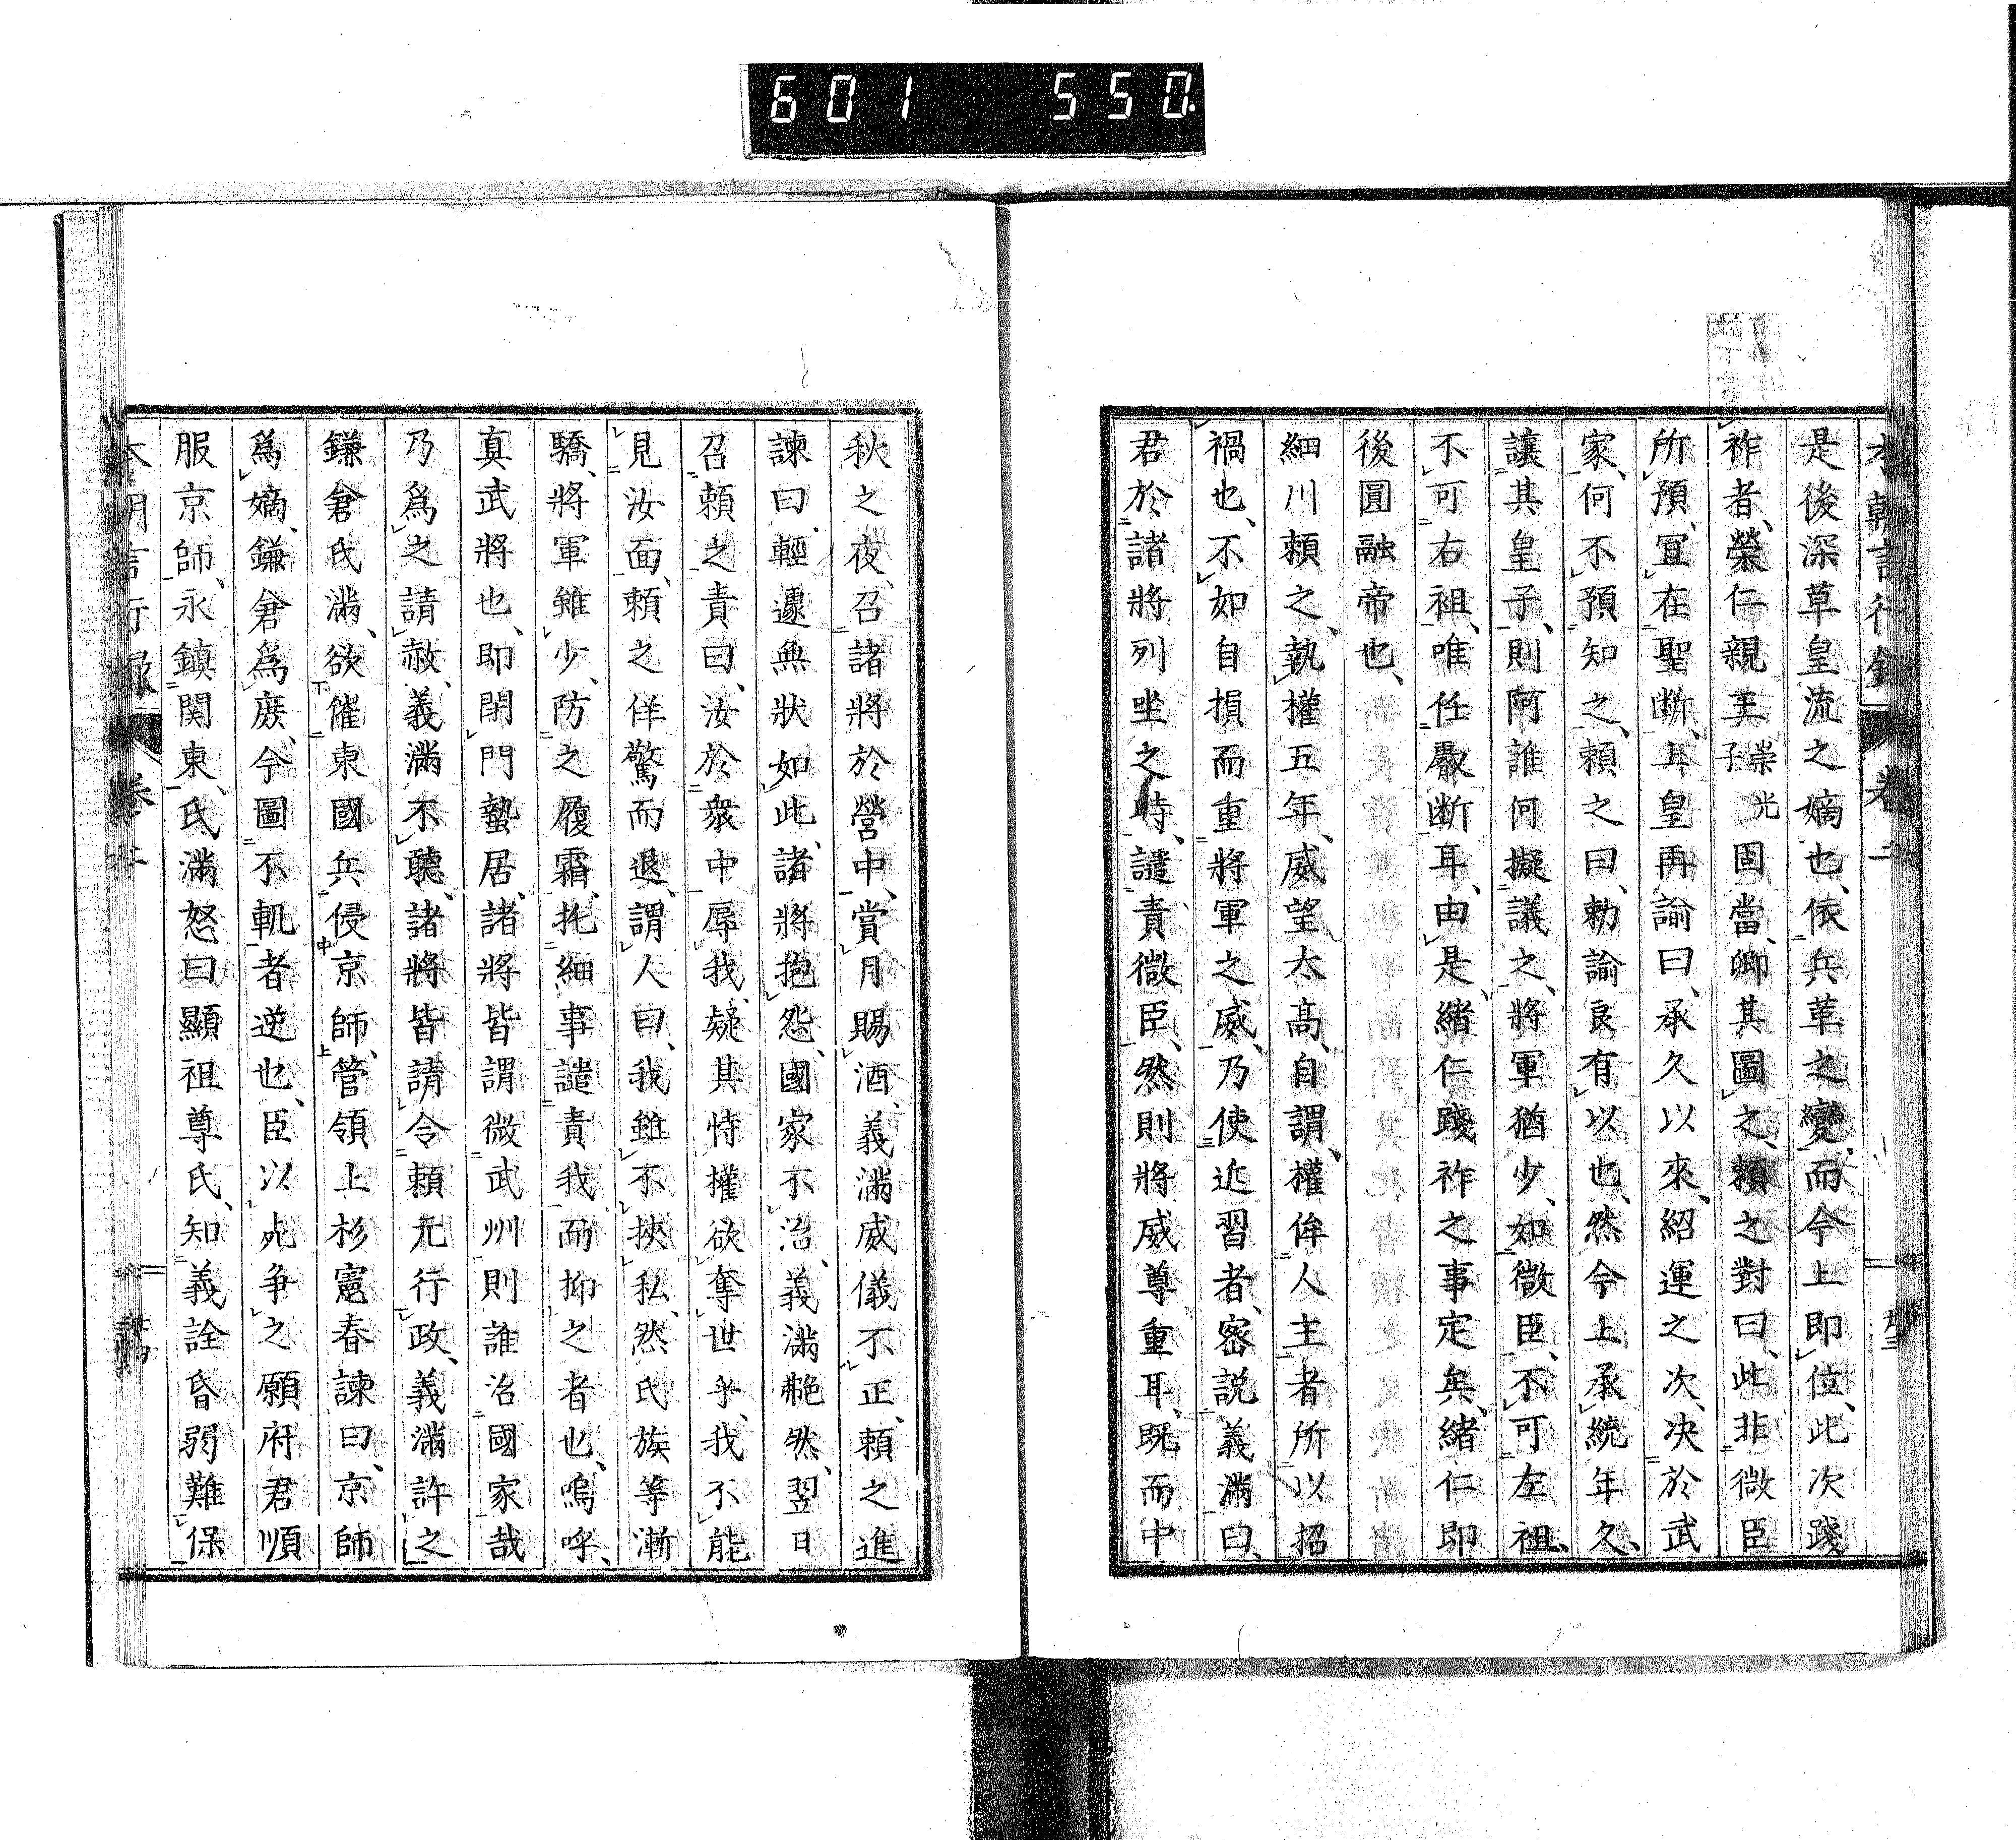 601 550
本朝言行録 卷二
是後深草皇流之嫡也、依兵革之變、而今上即位、此次踐
祚者、榮仁親王崇光子固當、卿其圖之、頼之對曰、此非微臣
所預、冝在聖断、耳、皇再諭曰、承久以來、紹運之次、决於武
家、何不預知之、頼之曰、勅諭良有以也、然今上承統年久、
讓其皇子、則阿誰何擬議之、將軍猶少、如微臣、不可左袒、
不可右袒、唯任叡断耳、由是、緒仁踐祚之事定矣、緒仁即
後圓融帝也、
細川頼之、執權五年、威望太高、自謂、權侔人主者所以招
禍也、不如自損而重將軍之威、乃使近習者、密説義滿曰、
君於諸將列坐之時、譴責微臣、然則將威尊重耳、既而中
秋之夜、召諸將於營中、賞月賜酒、義滿威儀不正、頼之進
諫曰、輕遽無狀如此、諸將抱怨、國家不治、義滿艴然、翌日
召頼之責曰、汝於衆中辱我、疑其恃權欲奪世乎、我不能
見汝面、頼之佯驚而退、謂人曰、我雖不挾私、然氏族等漸
驕、將軍雖少、防之履霜、托細事譴責我、而抑之者也、嗚呼、
真武將也、即閉門蟄居、諸將皆謂微武州則誰治國家哉
乃爲之請赦、義滿不聽、諸將皆請令頼元行政、義滿許之
鎌倉氏滿、欲催東國兵侵京師、管領上杉憲春諫曰、京師
爲嫡、鎌倉爲庻、今圖不軌者逆也、臣以死争之願府君順
服京師、永鎮関東、氏滿怒曰顯祖尊氏、知義詮昏弱難保
本朝言行録 卷二